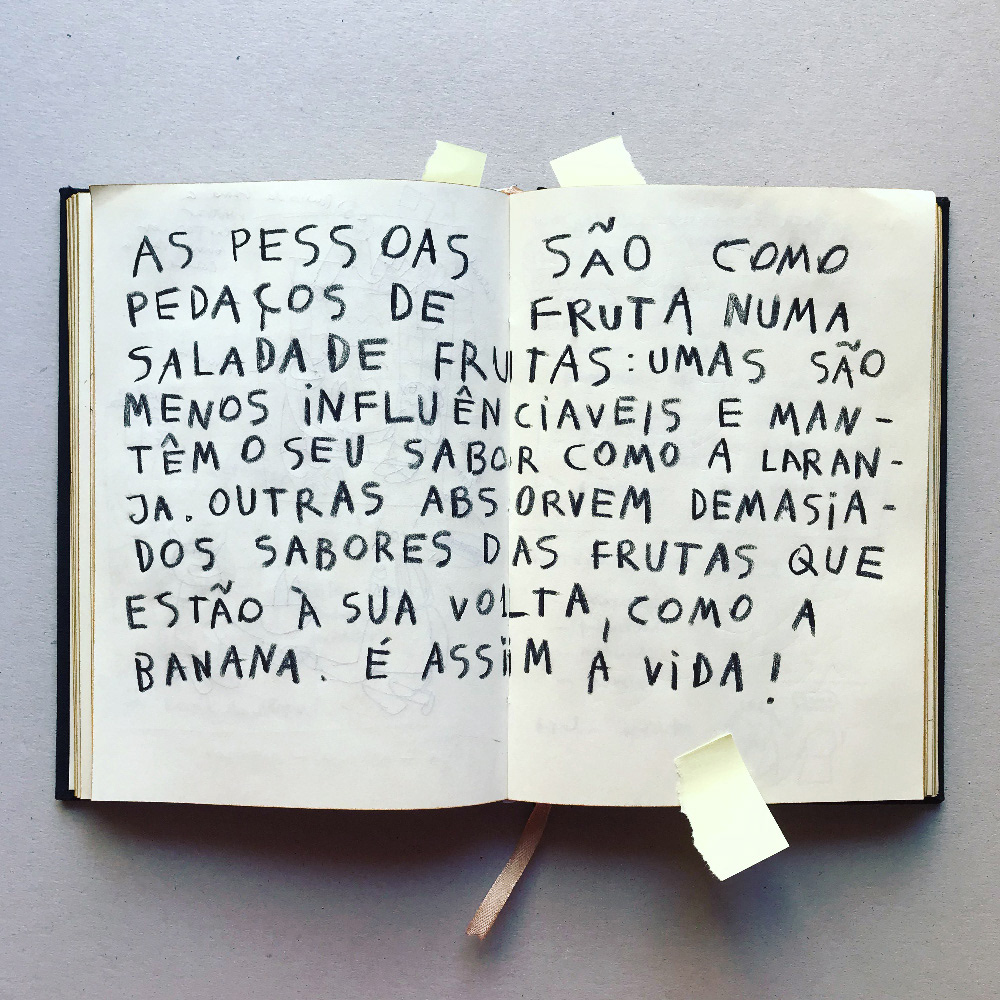 AS PESSOAS SÃO COMO
PEDAÇOS DE FRUTA NUMA
SALADA DE FRUTAS: UMAS SÃO
MENOS INFLUÊNCIAVEIS E MAN-
TÊM O SEU SABOR COMO A LARAN-
JA. OUTRAS ABSORVEM DEMASIA-
DOS SABORES DAS FRUTAS QUE
ESTÃO À SUA VOLTA, COMO A
BANANA. É ASSIM A VIDA!